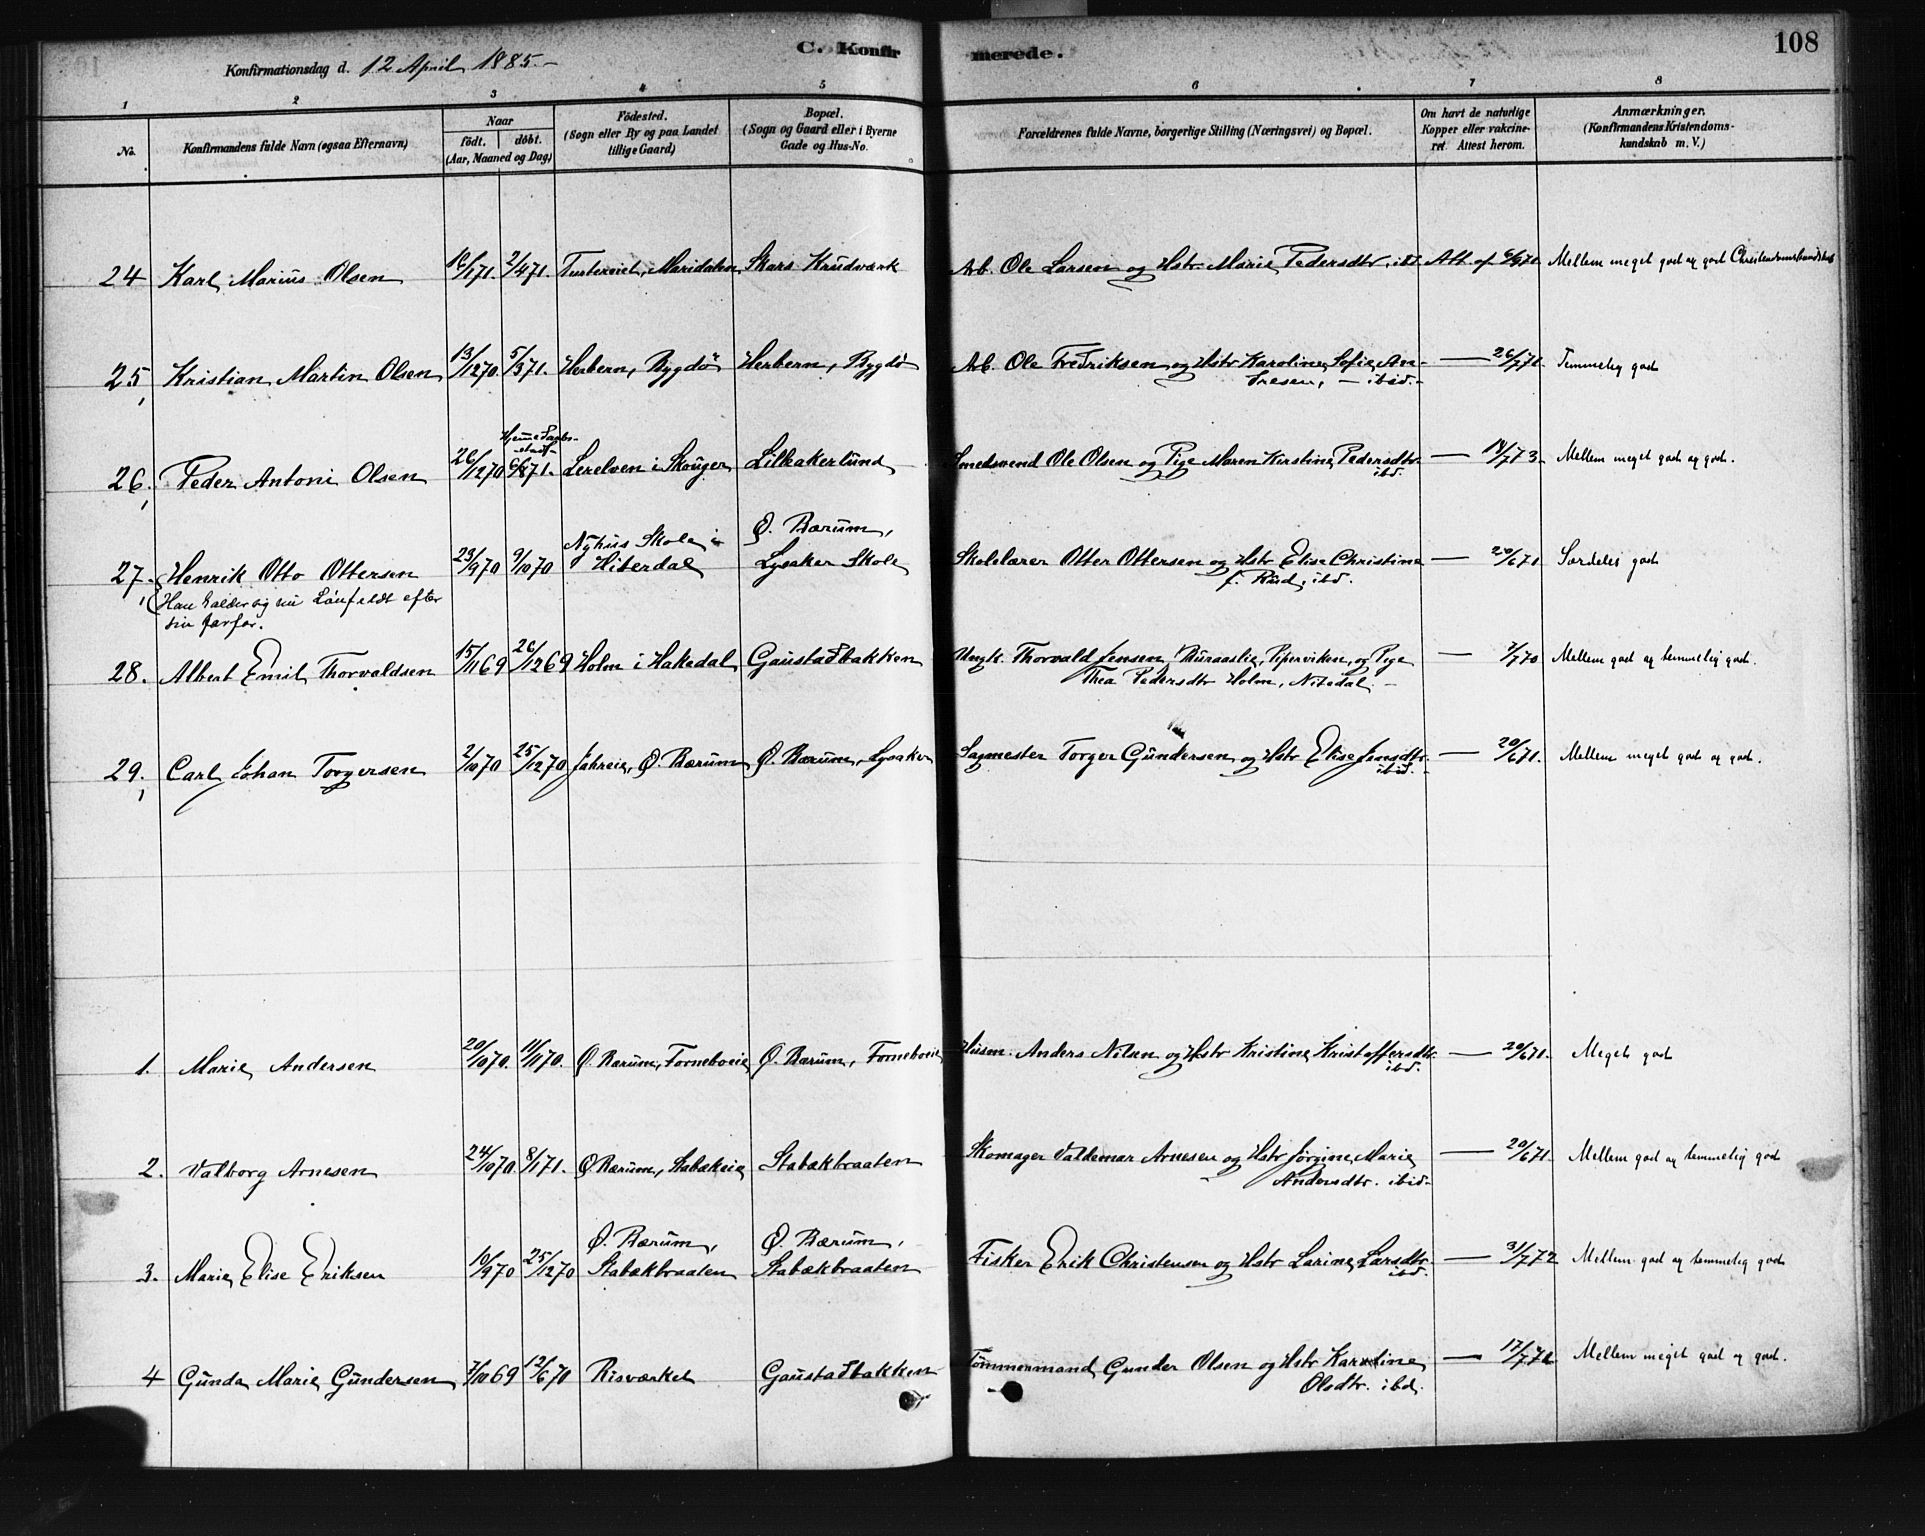 C. Konfirmerede.
108
Konfirmationsdag d. 12 April 1885.
1 2 3 4 5 6 7 8
No.
Konfirmandens fulde Navn (ogsaa Efternavn)
Naar
födt. döbt.
(Aar, Maaned og Dag)
Födested.
(Sogn eller By og paa Landet
tillige Gaard)
Bopæl.
(Sogn og Gaard eller i Byerne
Gade og Hus-No.
Forældrenes fulde Navne, borgerlige Stilling (Næringsvei) og Bopæl.
Om havt de naturlige
Kopper eller vakcine-
ret. Attest herom.
Anmærkninger.
(Konfirmandens Kristendoms-
kundskab m. V.)
24 Karl Marius Olsen 16/1 71. 2/4 71. Maridalen Skars Krudværk Arb. Ole Larsen og Hstr. Marie Pedersdtr. ibd. Att. af 71 Mellem meget god og god Christendomskundskab
25, Kristian Martin Olsen 13/12 70. 5/3 71. Herbern, Bygdö Herbern, Bygdö Arb. Ole Fredriksen og Hstr Karoline Sofie An-
dresen, — ibid. — 26/7 71. Temmelig god
Hjemme
26. Peder Antoni Olsen 26/12 70 71. i Skouger Lilleakerlund Smedsvend Ole Olsen og Pige Maren Kirstine Pedersdtr.
ibd. — 14/7 73. Mellem meget god og god.
27. Henrik Otto Ottersen 23/9 70 9/10 70 Nyhus Skole i
Hiterdal Ø. Bærum,
Lysaker Skole Skolelærer Otter Ottersen og Hstr Elise Christine
f. Rud, ibd. — 20/6 71. Særdeles god
Han kalder sig nu Løufeldt efter
sin farfar.
28. Albert Emil Thorvaldsen 15/11 69 26/12 69 Holm i Hakedal Gaustadbakken Ungk. Thorvald Jensen Piperviken, og Pige
Thea Pedersdtr Holm, Nitedal. — 7/7 70 Mellem god og temmelig god.
29. Carl Johan Torgersen 2/10 70 25/12 70 Ø. Bærum Ø. Bærum, Lysaker Sagmester Torger Gundersen og Hstr Elise Jensdtr.
ibid. — 20/6 71. Mellem meget god og god.
1. Marie Andersen 20/10 70. 11/11 70. Ø. Bærum, Forneboeie Ø. Bærum, Forneboeie Husm. Anders Nilsen og Hstr Kristine Kristoffersdtr.
ibd. — 20/6 71. Meget god
2. Valborg Arnesen 24/10 70. 8/1 71. Ø. Bærum, Stabækeie Stabækbraaten Skomager Valdemar Arnesen og Hstr Jörgine Marie
Andersdtr. ibid. — 20/6 71. Mellem god og temmelig god
3. Marie Elise Eriksen 10/9 70 25/12 70 Ø. Bærum,
Stabækbraaten Ø. Bærum,
Stabækbraaten Fisker Erik Christensen og Hstr Larine Larsdtr.
ibd. — 31/7 72 Mellem god og temmelig god
4 Gunda Marie Gundersen 7/10 69 12/6 70 Risværket Gaustadbakken Tömmermand Gunder Olsen og Hstr Karoline
Olsdtr. ibd. — 17/7 72 Mellem meget god og god.